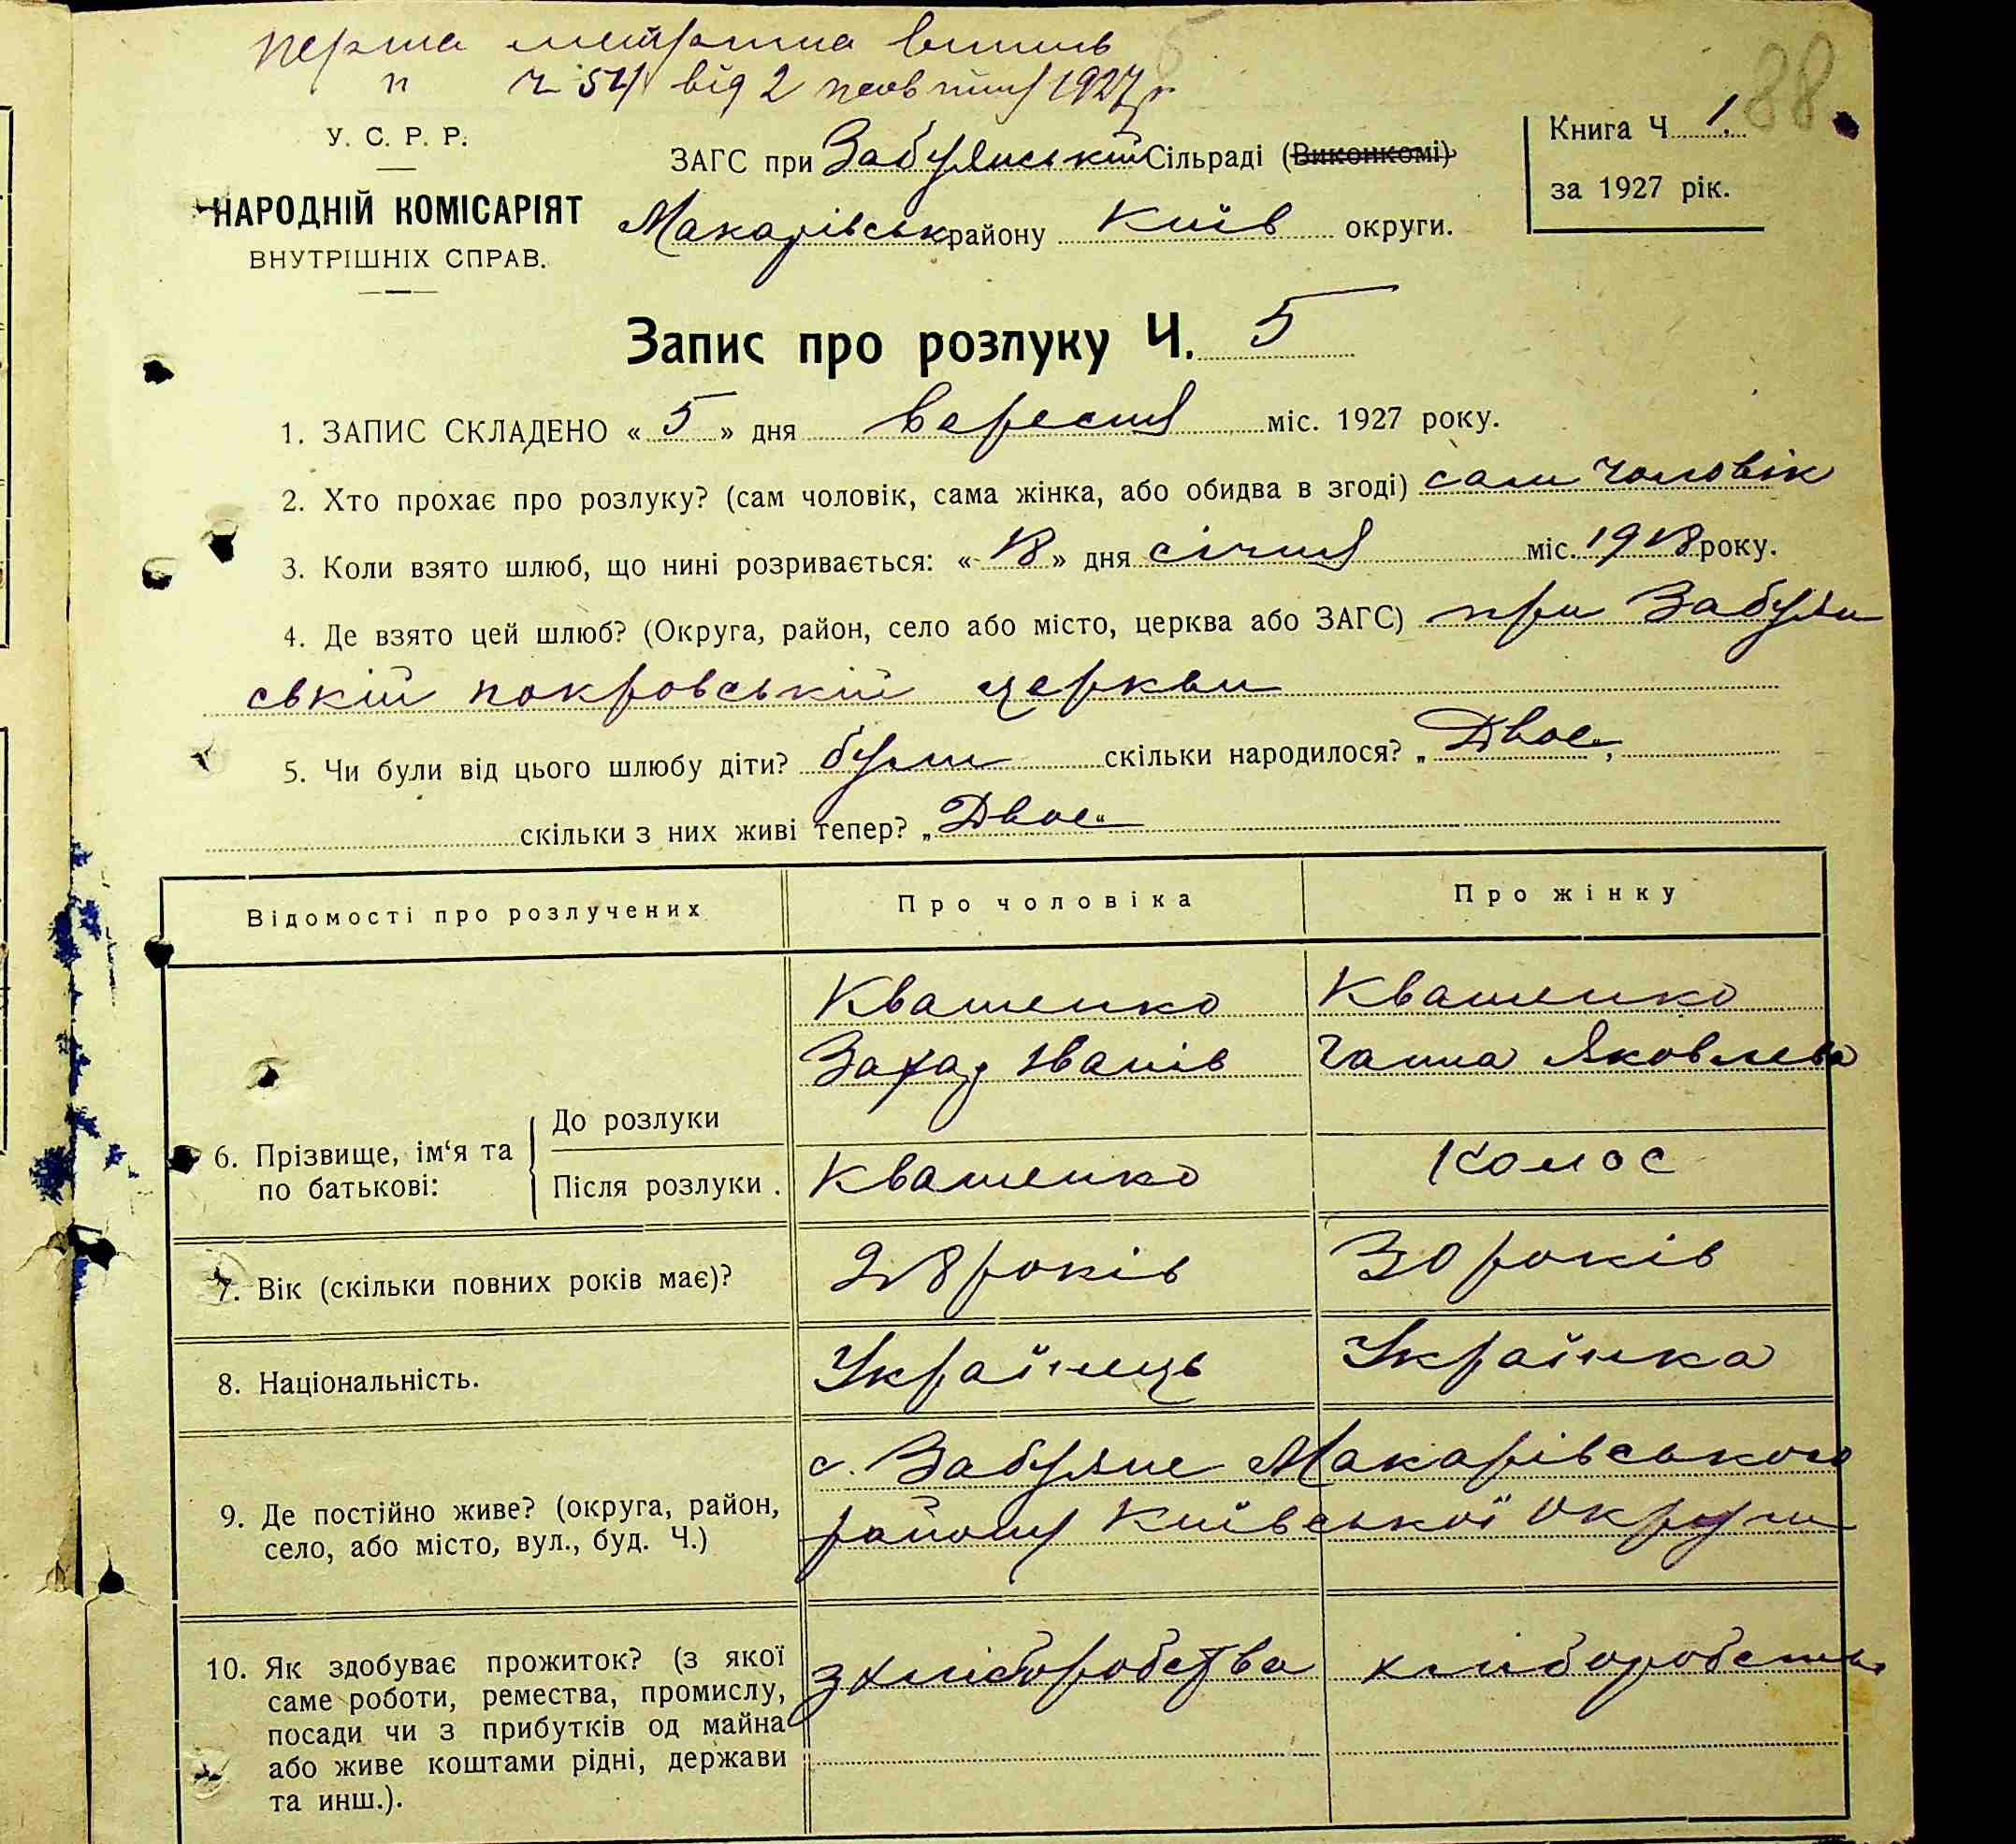 перша метрична випись
п ч 54 від 2 жовтня 1927 р.
88
У. С. Р. Р.
НАРОДНІЙ КОМІСАРІЯТ
ВНУТРІШНІХ СПРАВ.
ЗАГС при Забуянській Сільраді (Виконкомі)
Макарівськ району Київ округи.
Книга Ч 1.
за 1927 рік.
Запис про розлуку Ч. 5
1. ЗАПИС СКЛАДЕНО « 5 » дня вересня міс. 1927 року.
2. Хто прохає про розлуку? (сам чоловік, сама жінка, або обидва в згоді) сам чоловік
3. Коли взято шлюб, що нині розривається: « 18 » дня січня міс. 1918 року.
4. Де взято цей шлюб? (Округа, район, село або місто, церква або ЗАГС) при Забуян
ській покровській церкви
5. Чи були від цього шлюбу діти? були скільки народилося? „Двое“,
скільки з них живі тепер? „Двое“
Відомості про розлучених
Про чоловіка
Про жінку
6. Прізвище, ім‘я та
по батькові:
До розлуки
Квашенко
Захар Іванів
Квашенко
Ганна Яковлева
Після розлуки .
Квашенко
Колос
7. Вік (скільки повних років має)?
28 років
30 років
8. Національність.
Українець
Українка
9. Де постійно живе? (округа, район,
село, або місто, вул., буд. Ч.)
с. Забуяне Макарівського
району Київської Округи
10. Як здобуває прожиток? (з якої
саме роботи, ремества, промислу,
посади чи з прибутків од майна
або живе коштами рідні, держави
та инш.).
з хліборобства
хліборобства